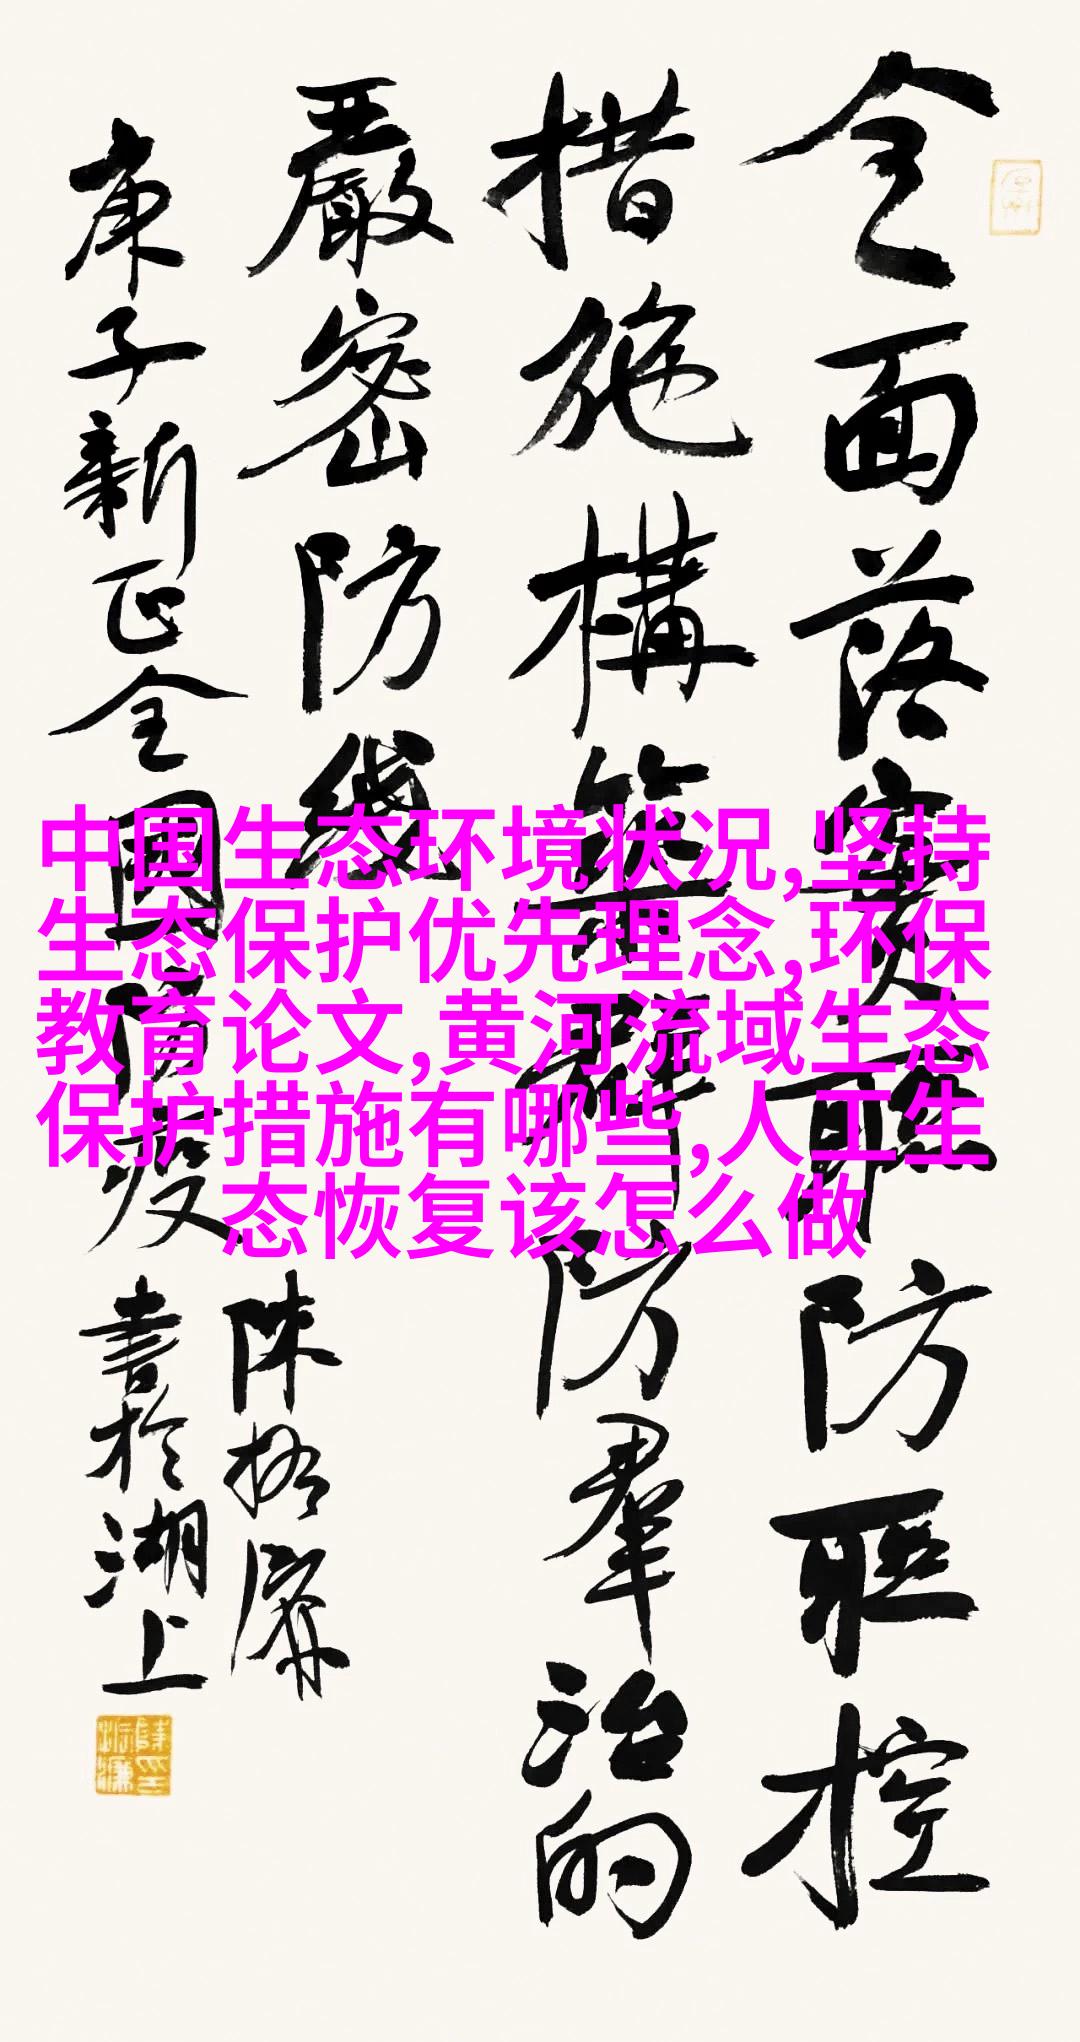 全面落实联防联控
措施構築群防羣治的
嚴密防线
庚子新正全國防疫
陳振濂
書於湖上
中国生态环境状况,坚持
生态保护优先理念,环保
教育论文,黄河流域生态
保护措施有哪些,人工生
态恢复该怎么做